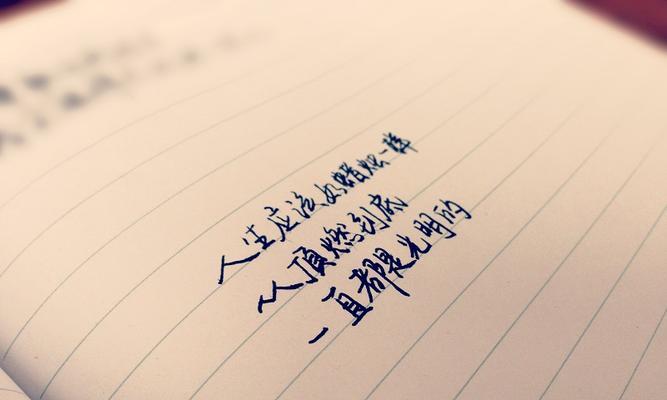 人生应该如蜡烛一样
从顶燃到底
一直都是光明的